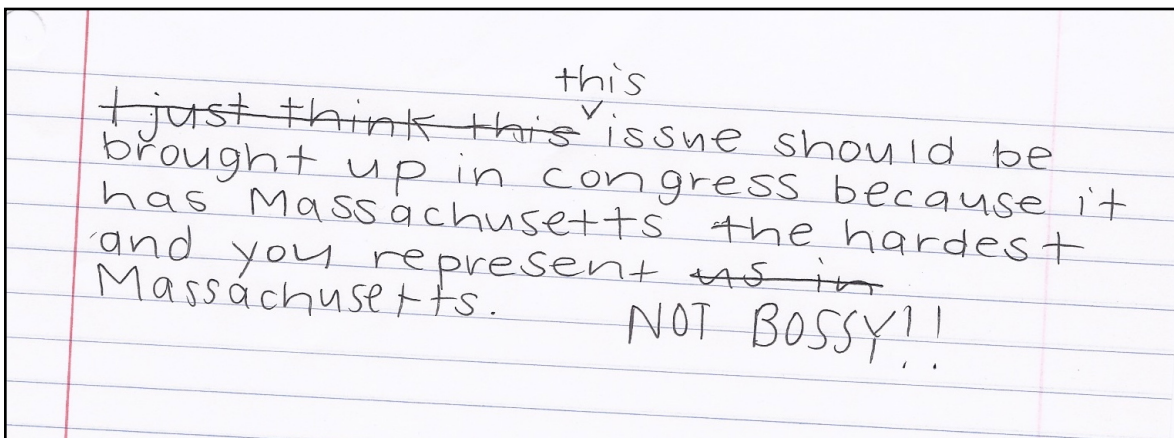 this
I just think this issue should be
brought up in congress because it
has Massachusetts the hardest
and you represent us in
Massachusetts. NOT BOSSY!!